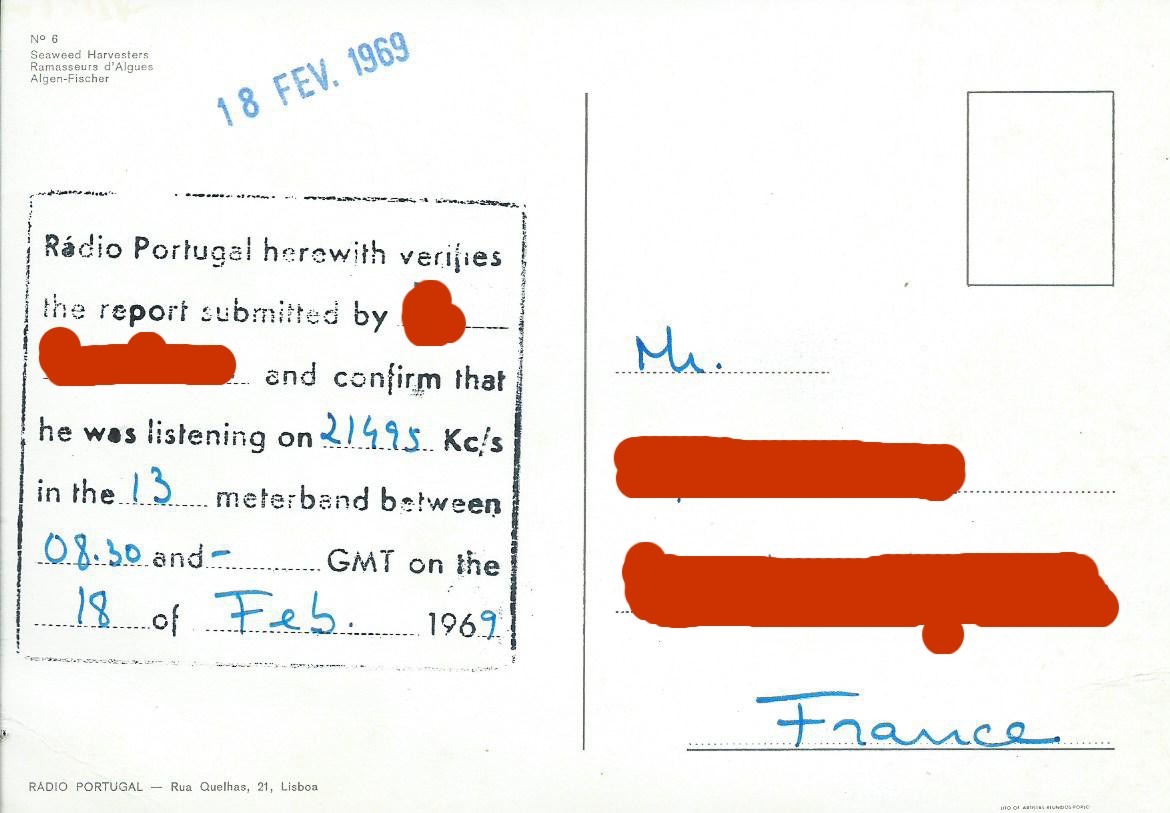 Nº 6
Seaweed Harvesters
Ramasseurs d'Algues
Algen-Fischer
18 FEV. 1969
Rádio Portugal herewith verifies
the report submitted by
and confirm that
he was listening on 21495 Kc/s
in the 13 meterband between
08.30 and - GMT on the
18 of Feb. 1969
RÁDIO PORTUGAL — Rua Quelhas, 21, Lisboa
Mr.
France